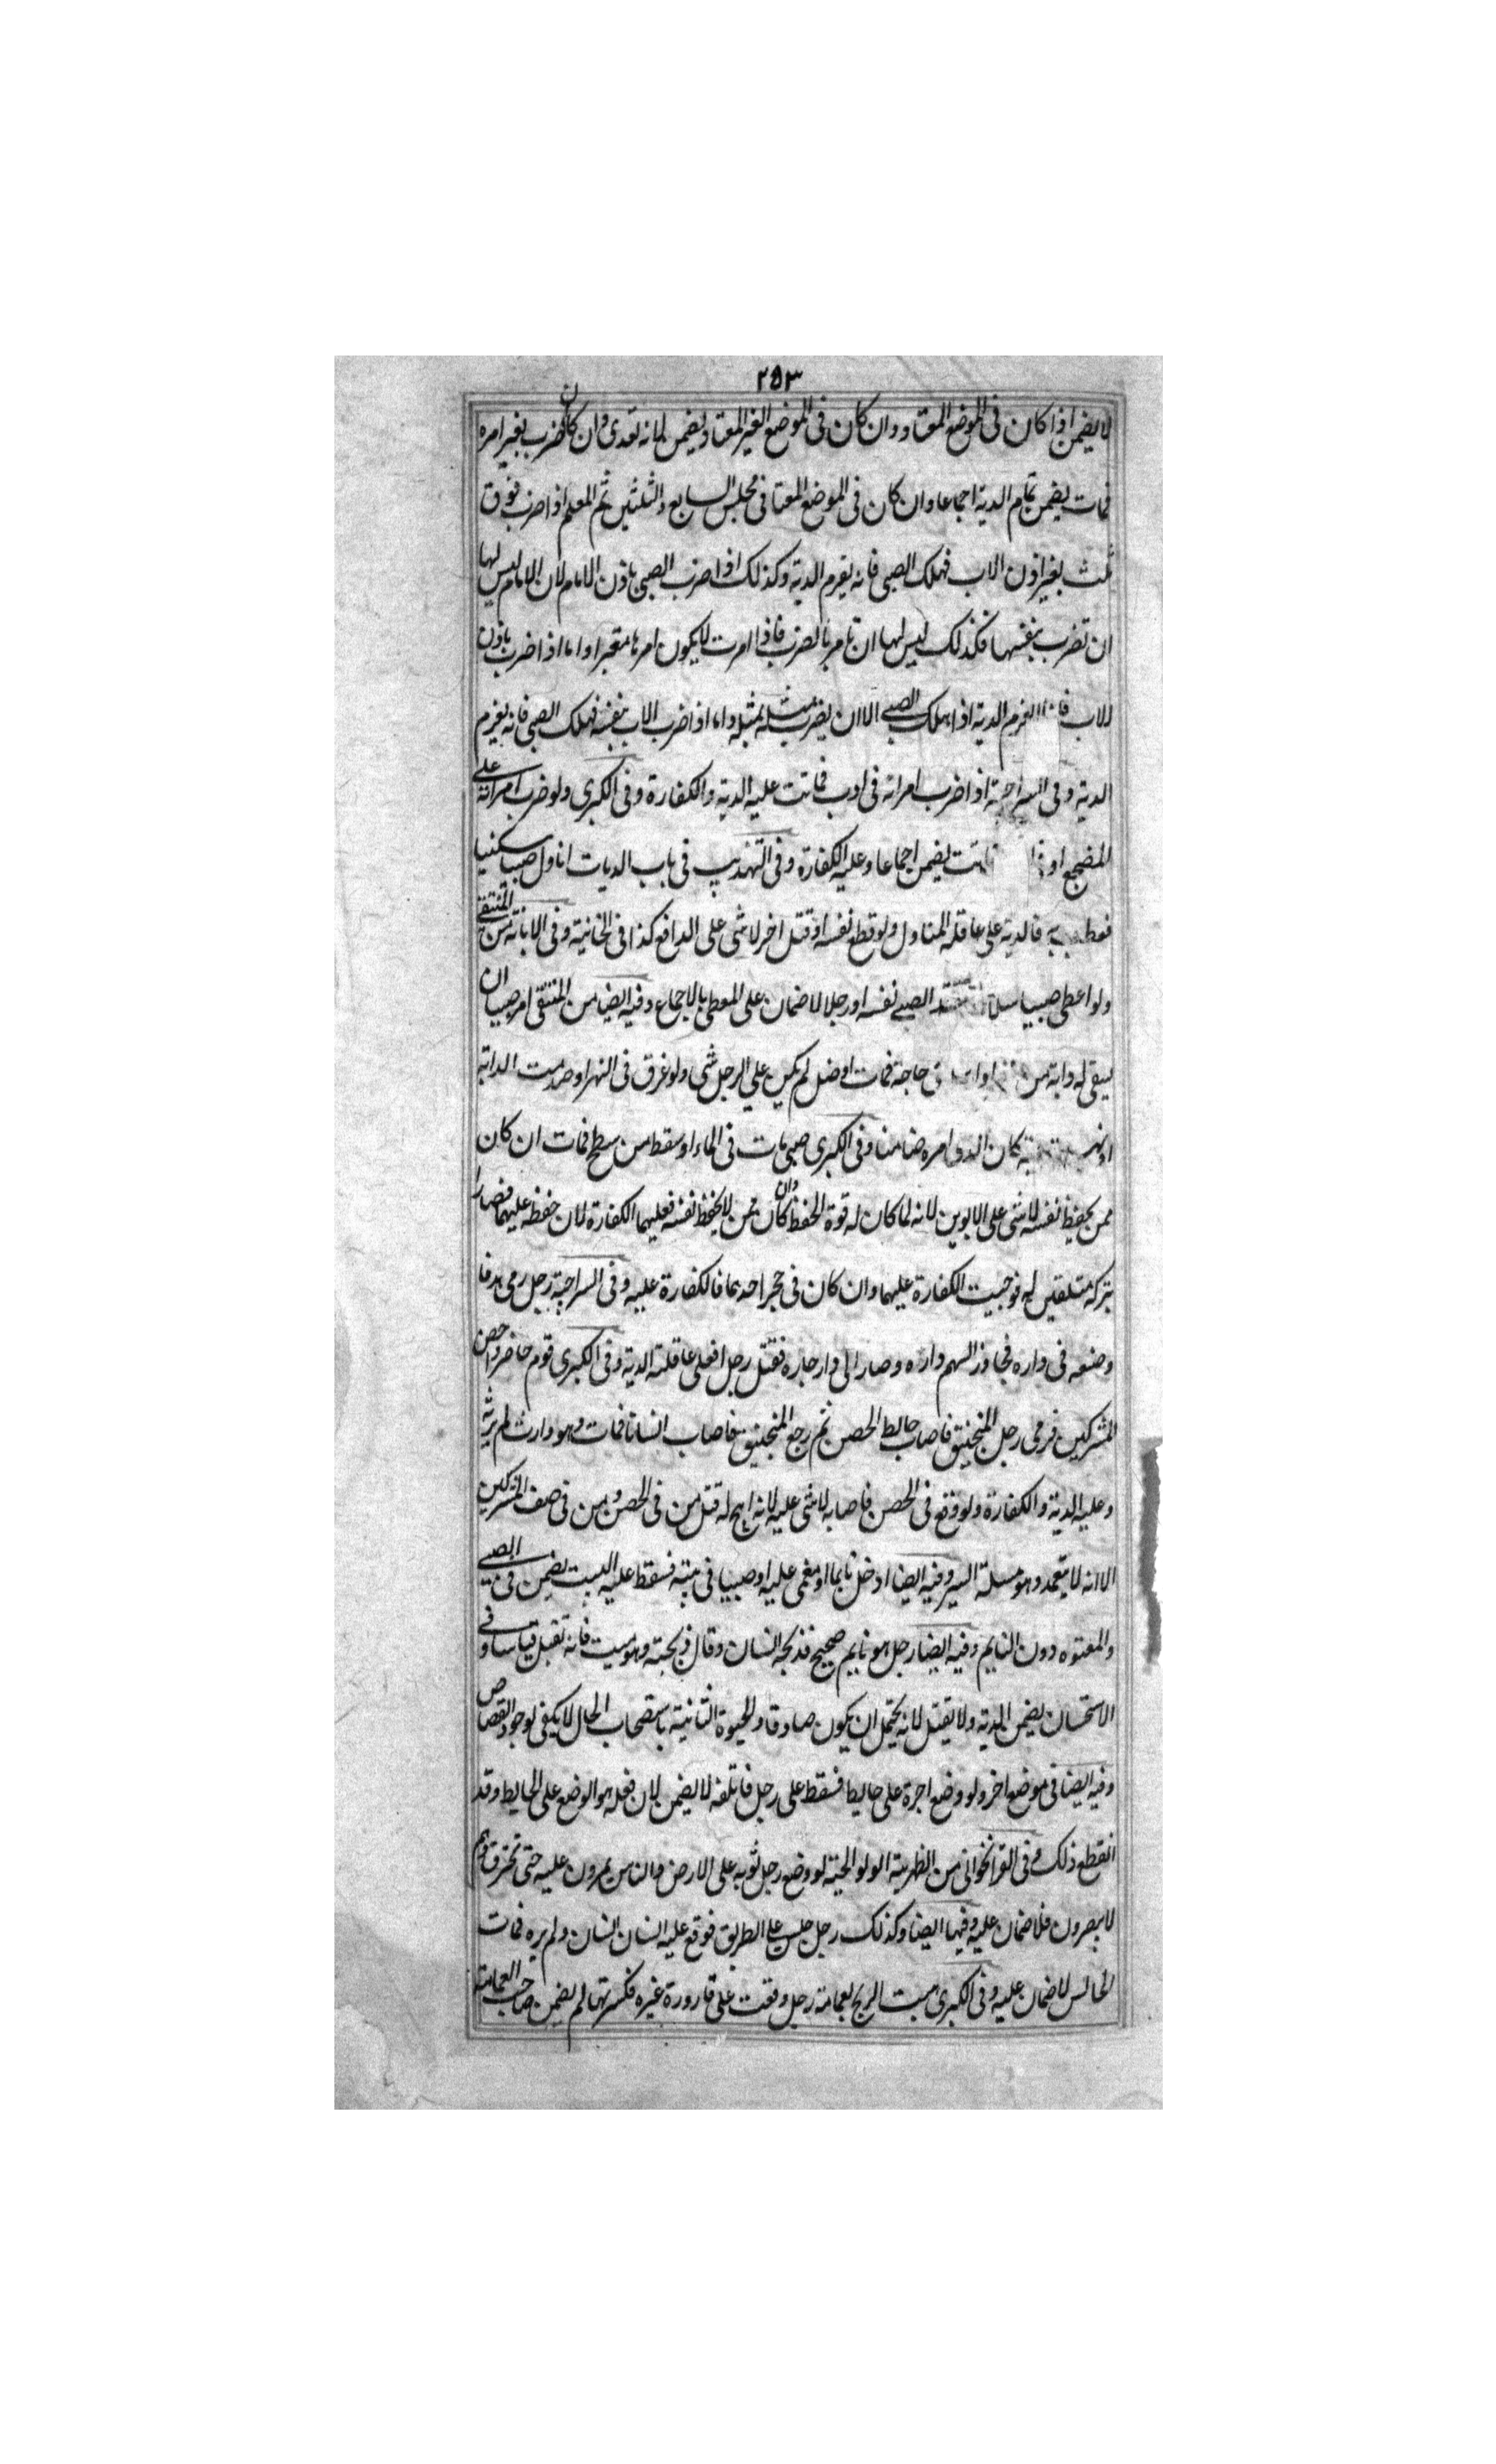 ٢٥٣
لا يضمن اذا كان فى الموضع المعتاد وان كان فى الموضع الغير المعتاد يضمن لانه تعدى وان كان ضرب بغير امره
فمات يضمن تمام الدية اجماعا وان كان فى الموضع المعتا فى مجلس السابع والثلثين ثم المعلم اذا ضرب فوق
ثلث بغير اذن الاب فهلك الصبى فانه يغرم الدية وكذلك اذا ضرب الصبى باذن الامام لان الامام ليس لها
ان تضرب بنفسها فكذلك ليس لها ان تامر بالضرب فاذا امرت لا يكون امرها معتبرا واما اذا ضرب باذن
الاب الغرم الدية اذا هلك الصبى الا ان يضرب مثله بمثله واما اذا ضرب الاب بنفسه فهلك الصبى فانه يغرم
الدية وفى السراجية اذا ضرب امراته فى ادب فماتت عليه الدية والكفارة وفى الكبرى ولو ضرب امراته على
المضجع يضمن اجماعا وعليه الكفارة وفى التهذيب فى باب الديات اناول صبيا سكينا
فعطب به فالدية على عاقلة المناول ولو قطع نفسه او قتل اخر لا شى على الدافع كذا فى الخانية وفى الابانة من المنتقى
ولو اعطى صبيا سلاحا الصبى نفسه او رجلا لا ضمان على المعطى بالاجماع وفيه ايضا من المنتقى امر صبيا ان
يسقى له دابة من حاجة فمات او ضل لم يكن على الرجل شى ولو غرق فى النهر او صدمت الدابة
كان الذى امره ضامنا وفى الكبرى صبى مات فى الماء او سقط من سطح فمات ان كان
ممن يحفظ نفسه لا شى على الابوين لانه لما كان له قوة الحفظ وان كان ممن لا يحفظ نفسه فعليهما الكفارة لان حفظه عليهما فصارا
بتركه متلفين له فوجبت الكفارة عليهما وان كان فى حجر احدهما فالكفارة عليه وفى السراجية رجل رمى هدفا
وضعه فى داره فجاوز السهم داره وصار الى دار جاره فقتل رجلا فعلى عاقلته الدية وفى الكبرى قوم حاضروا حصن
المشركين فرمى رجل المنجنيق فاصاب حائط الحصن ثم رجع المنجنيق فاصاب انسانا فمات وهو وارث لم يرثه
وعليه الدية والكفارة ولو وقع فى الحصن فاصابه لا شى عليه لانه ابيح له قتل من فى الحصن ومن فى صف المشركين
الا انه لا يتعمد وهو مسلة السير وفيه ايضا ادخل نايما او مغمى عليه او صبيا فى بيته فسقط عليه البيت يضمن فى الصبى
والمعتوه دون النايم وفيه ايضا رجل هو نايم صحيح فذبحه انسان وقال ذبحته وهو ميت فانه تقبل قياسا وفى
الاستحسان يضمن الدية ولا يقتل لانه يحتمل ان يكون صادقا والحيوة الثانية باستصحاب الحال لا يكفى لوجود القصاص
وفيه ايضا فى موضع اخر ولو وضع اجرة على حايط فسقط على رجل فاتلفه لا يضمن لان فعله هو الوضع على الحايط وقد
انقطع ذلك وفى القراخوانى من الظهرية الولوالجية لو وضع رجل ثوبه على الارض والناس يمرون عليه حتى تخرق وهم
لا يبصرون فلا ضمان عليه وفيها ايضا وكذلك رجل جلس على الطريق فوقع عليه انسان انسان ولم يره فمات
الجالس لا ضمان عليه وفى الكبرى هبت الريح بعمامة رجل وقعت على قارورة غيره فكسرتها لم يضمن صاحب العمامة